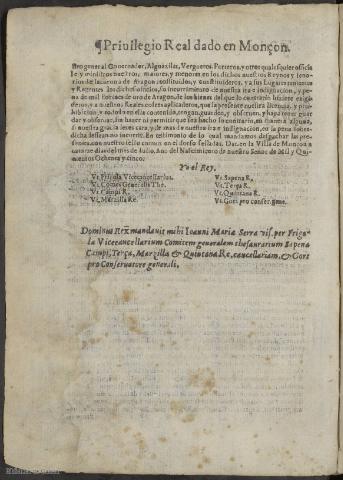 ¶Priuilegio Real dado en Monçon.
stro general Gouernador, Alguaziles, Vergueros, Porteros, y otros qualesquier officia
les y ministros nuestros, maiores, y menores en los dichos nuestros Reynos y seno
rios de la corona de Aragon constituidos, y constituideros, y a sus Lugartenientes
y Regentes los dichos officios, so incurrimiento de nuestra ira e indignacion, y pe
na de mil florines de oro de Aragon, de los bienes del que lo contrario hiziere exigi
deros, y a nuestros Reales cofres aplicaderos, que la presente nuestra licencia, y pro
hibicion, y todo lo en ella contenido, tengan, guarden, y obseruen, y haga tener guar
dar, y obseruar, y no hagan ni permitan que sea hecho lo contrario, en manera alguna,
si nuestra gracia les es cara, y de mas de nuestra ira e indignacion, en la pena sobre
dicha dessean no incurrir. En testimonio de lo qual mandamos despachar las pre
sentes, con nuestro sello comun en el dorso selladas. Dat. en la Villa de Monçon a
dias del mes de Iulio, Año del Nascimiento de nuestro Señor de Mil y Qui
nientos Ochenta y cinco.
Yo el Rey.
Vt. Frigola Vicecancellarius.
Vt. Comes Generalis The.
Vt. Campi R.
Vt. Marzilla Re.
Vt. Sapena R.
Vt. Terça R.
Vt. Quintana R.
Vt. Gort pro conser. gene.
Dominus Rex mandauit mihi Ioanni Maria Serra vis. per Frigo
la Vicecancellarium Comitem generalem thesaurarium Sapena
Campi, Terça, Marzilla & Quintana Re. cancellariam, & Gort
pro Conseruatore generali.